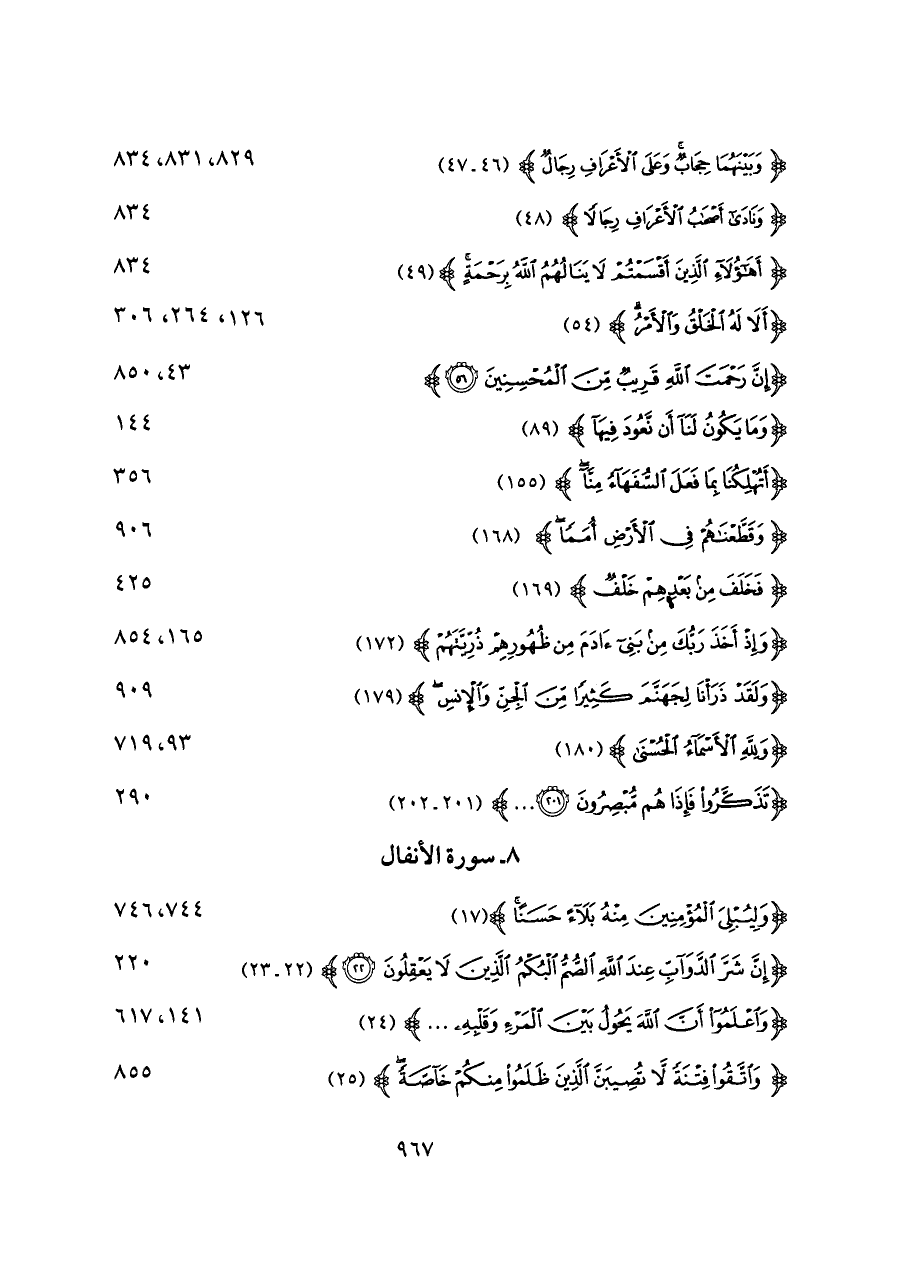 ﴿ وَبَيْنَهُمَا حِجَابٌ وَعَلَى ٱلْأَعْرَافِ رِجَالٌ ﴾ (٤٦ـ٤٧) ٨٢٩، ٨٣١، ٨٣٤
﴿ وَنَادَىٰٓ أَصْحَٰبُ ٱلْأَعْرَافِ رِجَالًا ﴾ (٤٨) ٨٣٤
﴿ أَهَٰٓؤُلَآءِ ٱلَّذِينَ أَقْسَمْتُمْ لَا يَنَالُهُمُ ٱللَّهُ بِرَحْمَةٍۚ ﴾ (٤٩) ٨٣٤
﴿أَلَا لَهُ ٱلْخَلْقُ وَٱلْأَمْرُۗ ﴾ (٥٤) ١٢٦، ٢٦٤، ٣٠٦
﴿إِنَّ رَحْمَتَ ٱللَّهِ قَرِيبٌ مِّنَ ٱلْمُحْسِنِينَ ٥٦ ﴾ ٤٣، ٨٥٠
﴿وَمَا يَكُونُ لَنَآ أَن نَّعُودَ فِيهَآ ﴾ (٨٩) ١٤٤
﴿أَتُهْلِكُنَا بِمَا فَعَلَ ٱلسُّفَهَآءُ مِنَّآۖ ﴾ (١٥٥) ٣٥٦
﴿ وَقَطَّعْنَٰهُمْ فِى ٱلْأَرْضِ أُمَمًاۖ ﴾ (١٦٨) ٩٠٦
﴿ فَخَلَفَ مِنۢ بَعْدِهِمْ خَلْفٌ ﴾ (١٦٩) ٤٢٥
﴿وَإِذْ أَخَذَ رَبُّكَ مِنۢ بَنِىٓ ءَادَمَ مِن ظُهُورِهِمْ ذُرِّيَّتَهُمْ ﴾ (١٧٢) ١٦٥، ٨٥٤
﴿وَلَقَدْ ذَرَأْنَا لِجَهَنَّمَ كَثِيرًا مِّنَ ٱلْجِنِّ وَٱلْإِنسِۖ ﴾ (١٧٩) ٩٠٩
﴿وَلِلَّهِ ٱلْأَسْمَآءُ ٱلْحُسْنَىٰ ﴾ (١٨٠) ٩٣، ٧١٩
﴿تَذَكَّرُوا۟ فَإِذَا هُم مُّبْصِرُونَ ٢٠١ ... ﴾ (٢٠١ـ٢٠٢) ٢٩٠
٨ـ سورة الأنفال
﴿وَلِيُبْلِىَ ٱلْمُؤْمِنِينَ مِنْهُ بَلَآءً حَسَنًاۚ ﴾(١٧) ٧٤٤، ٧٤٦
﴿إِنَّ شَرَّ ٱلدَّوَآبِّ عِندَ ٱللَّهِ ٱلصُّمُّ ٱلْبُكْمُ ٱلَّذِينَ لَا يَعْقِلُونَ ٢٢ ﴾ (٢٢ـ٢٣) ٢٢٠
﴿وَٱعْلَمُوٓا۟ أَنَّ ٱللَّهَ يَحُولُ بَيْنَ ٱلْمَرْءِ وَقَلْبِهِۦ ... ﴾ (٢٤) ١٤١، ٦١٧
﴿ وَٱتَّقُوا۟ فِتْنَةً لَّا تُصِيبَنَّ ٱلَّذِينَ ظَلَمُوا۟ مِنكُمْ خَآصَّةًۖ ﴾ (٢٥) ٨٥٥
٩٦٧